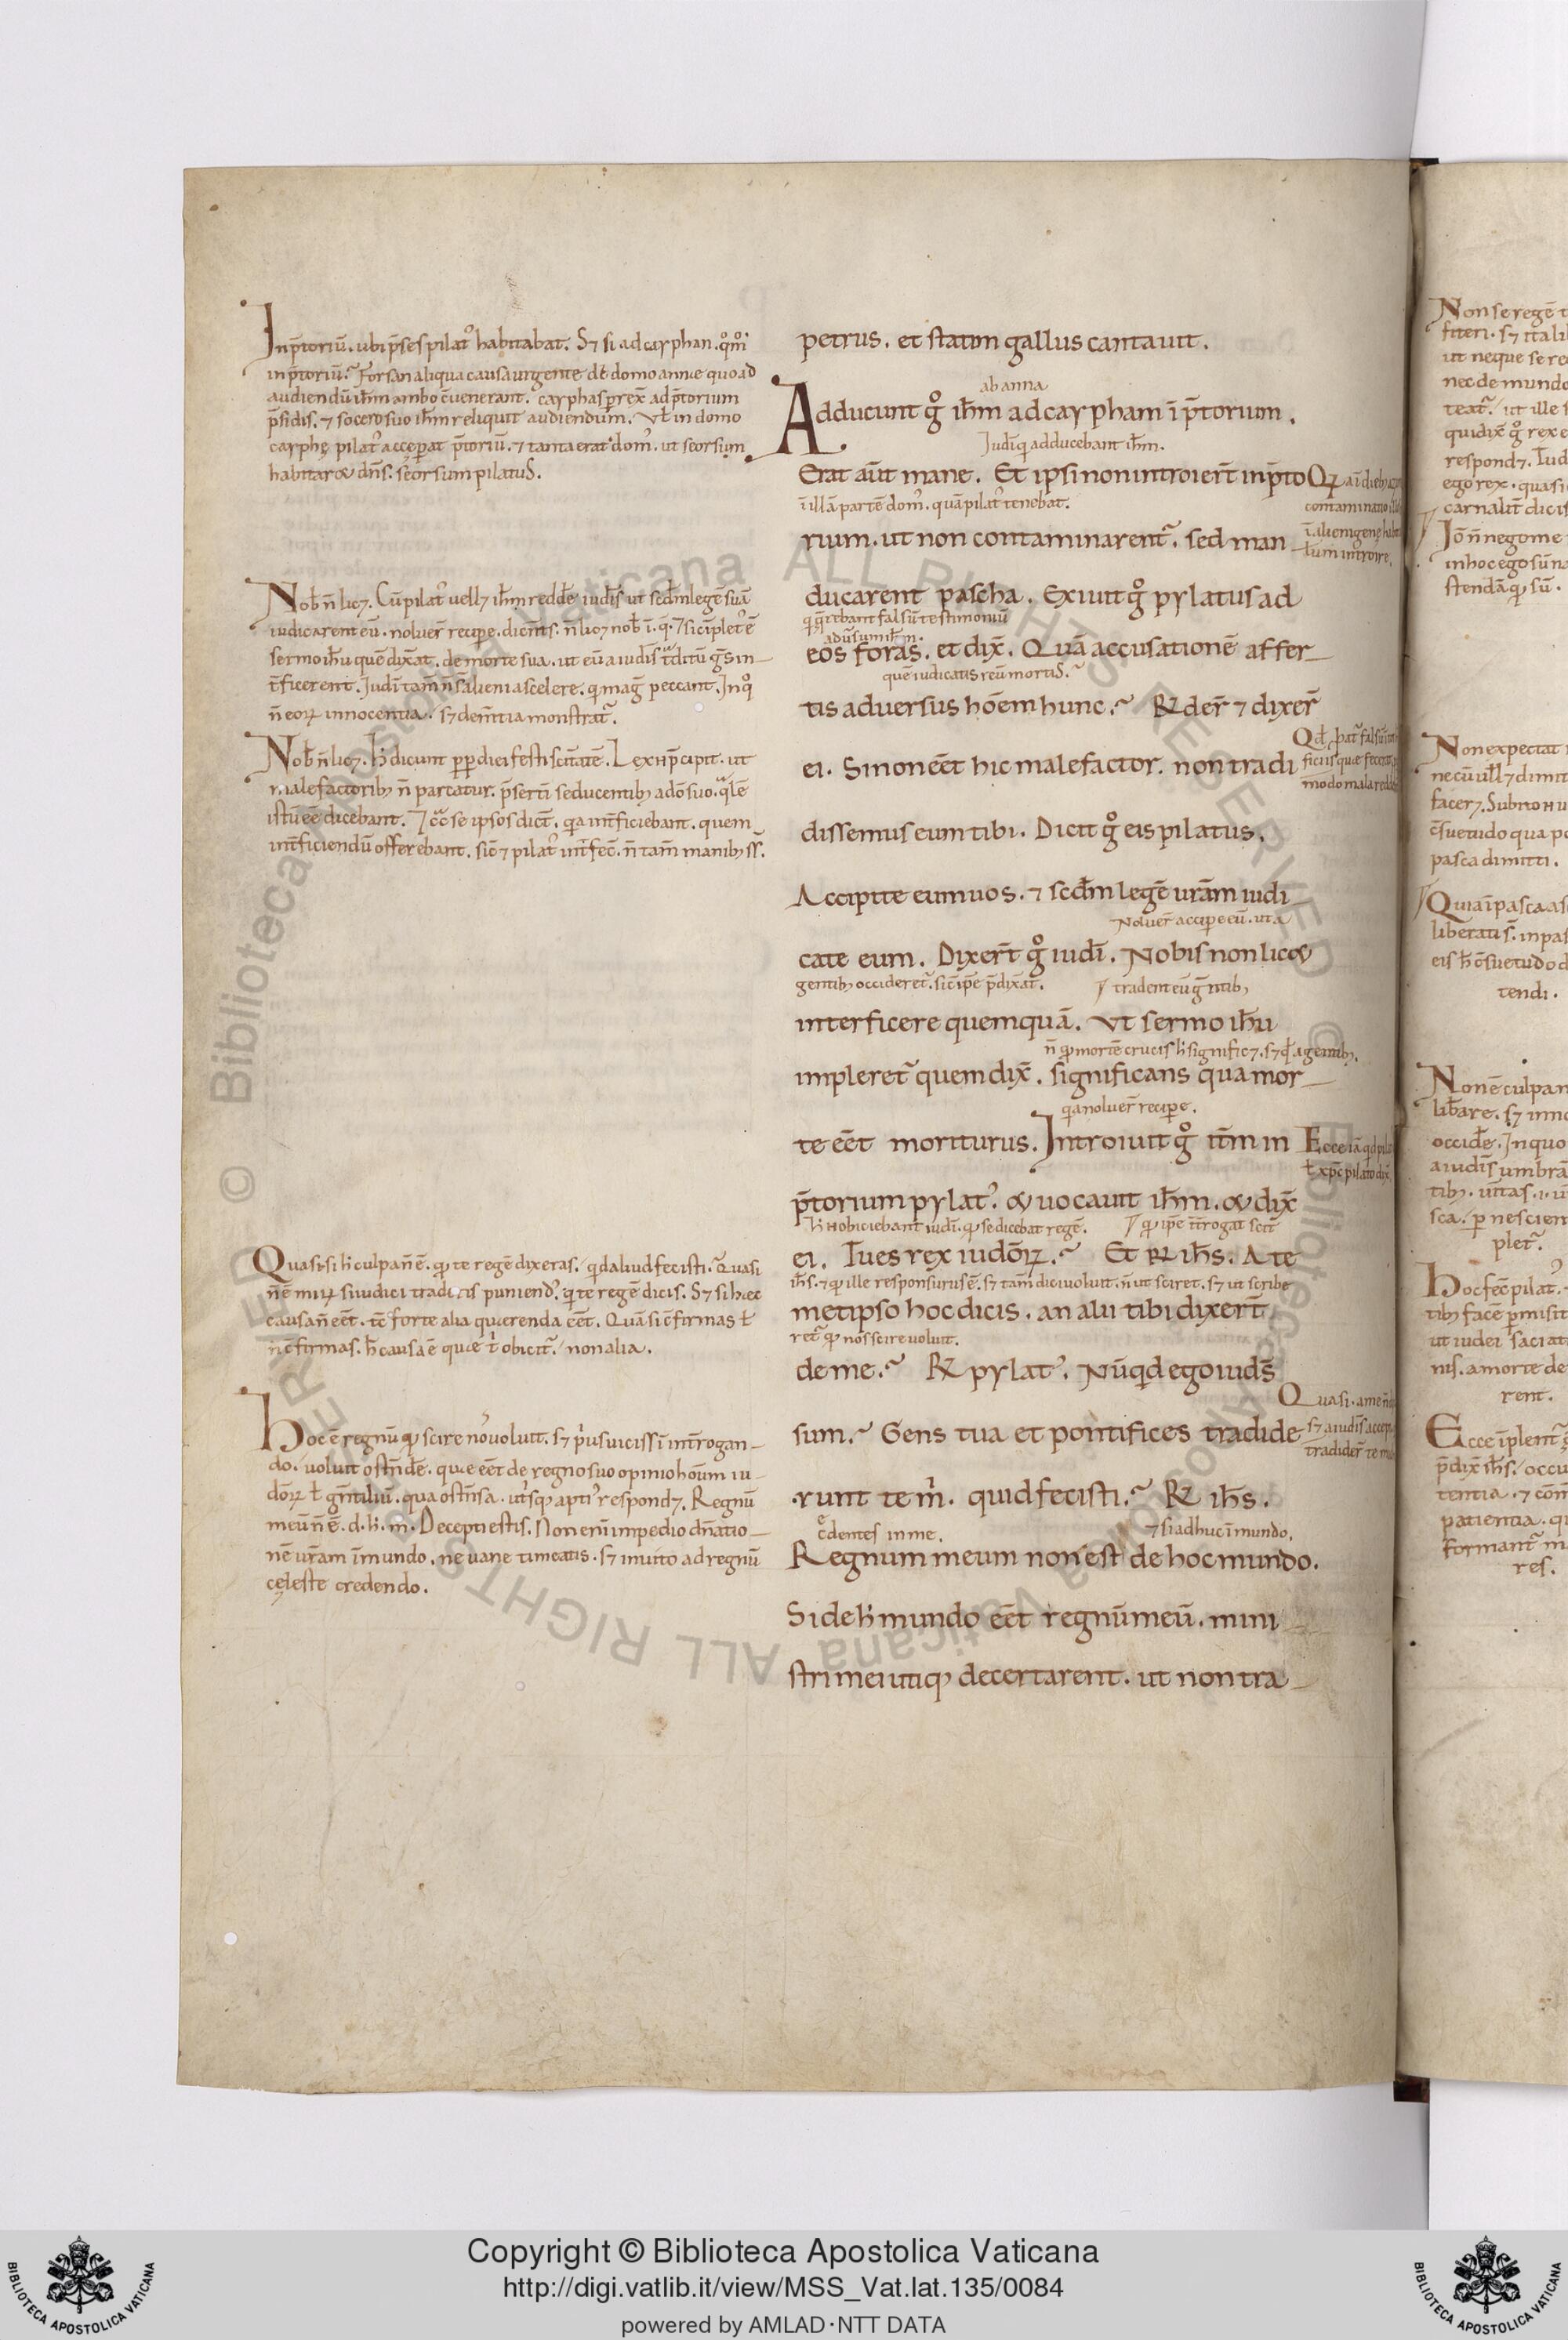 Inp̄toriū. ubi p̄ses pilat᾽ habitabat. Sꝫ si ad cayphan. qͦmͦ
in p̄toriū? Forsan aliqua causa urgente de domo annæ quo ad
audiendū ih̄m ambo c̄uenerant. cayphas p̱rex̄ ad p̄torium
p̄sidis. ⁊ socero suo ih̄m reliquit audiendum. Vł in domo
cayphę pilat᾽ accep̱at p̄toriū. ⁊ tanta erat dom᾽. ut seorsum
habitaret dn̄s. seorsum pilatus.
Nob̄ n̄ licꝫ. Cū pilat᾽ uellꝫ ih̄m redde iud̄is ut scd̄m legē suā
iudicarent eū. noluer̄ recip̱e. dicn̄ts. n̄ licꝫ nob̄ ī. q̄. ⁊ sic īplet᾽ ē
sermo ih̄u quē dix̄at. de morte sua. ut eū a iud̄is t̄ditū gn̄s in-
t̄ficerent. Iud̄i tam̄ n̄ s̄ alieni a scelere. qui mag̅ peccant. In qͦ
n̄ eoꝝ innocentia. sꝫ dem̄tia monstrat᷑.
Nob̄ n̄ licꝫ. h̄ dicunt pp̱ diei festi sc̄itatē. Lex n̄ p̄cipit. ut
malefactoribꝫ n̄ parcatur. p̄serti seducentibꝫ a dō suo. qͣlē
istū eē dicebant. ⁊ cͣ se ipsos dict̄. qͥa int̄ficiebant. quem
int̄ficiendū offerebant. sic̄ ⁊ pilat᾽ int̄fec̄. n̄ tam̄ manibꝫ ss̄.
Quasi si h̄ culpa n̄ ē. qđ te regē dixeras. qđ aliud fecisti? Quasi
n̄ ē miꝝ si iudici tradaris puniend᾽. qͥ te regē dicis. Sꝫ si hæc
causa n̄ eēt. tc̄ forte alia quærenda eēt. Quā si c̄firmas ł
n̄ c̄firmas. h̄ causa ē quæ tͥ obicit᷑. non alia.
Hoc ē regnū qđ scire no᾽ uoluit. sꝫ pͥus uicissī int̄rogan-
do. uoluit ostn̄de. quæ eēt de regno suo opinio hoūm iu-
dōꝝ ł gn̄tiliū. qua ostn̄sa. utͥsqꝫ apti᾽ respondꝫ. Regnū
meū n̄ ē. d. h̄. m̄. Decepti estis. Non enī impedio dn̄atio-
nē ur̄am ī mundo. ne uane timeatis. sꝫ inuito ad regnū
cęleste credendo.
petrus. et statim gallus cantauit.
ab anna
Adducunt gͦ ih̄m ad caypham ī p̄torium.
Iud̄i qui adducebant ih̄m.
Erat aūt mane. Et ipsi non introier̄t in p̄to
ī illā partē dom᾽. quā pilat᾽ tenebat.
rium. ut non contaminarent᷑. sed man
ducarent pascha. Exiuit gͦ pylatus ad
qui q̄rebant falsū testimoniū
adūsum ih̄m.
eos foras. et dix̄. Quā accusationē affer-
quē iudicatis reū mortis?
tis aduersus hōem hunc? ꝶder̄ ⁊ dixer̄
ei. Si non eēt hic malefactor. non tradi
dissemus eum tibi. Dicit gͦ eis pilatus.
Accipite eum uos. ⁊ scd̄m legē urām iudi
Noluer̄ accip̱e eū. ut a
cate eum. Dixer̄t gͦ iud̄i. Nobis non licet
gentibꝫ occideret᷑. sic̄ ipē p̄dixat̄.
tradent eū gn̄tibꝫ
interficere quemquā. Ut sermo ih̄u
n̄ qđ mortē crucis h̄ significꝫ. sꝫ qđ a gentibꝫ.
impleret᷑ quem dix̄. significans qua mor-
qͥa noluer̄ recip̱e.
te eēt moriturus. Introiuit gͦ itm̄ in
p̄torium pylat᾽. et uocauit ih̄m. et dix̄
h̄ n̄ obiciebant iud̄i. qđ se dicebat regē.
qđ ipē int̄rogat scit̄
ei. Tu es rex iudōꝝ? Et ꝶ ih̄s. A te
ih̄s. ⁊ qđ ille responsurus ē. sꝫ tam̄ dici uoluit. n̄ ut sciret. sꝫ ut scribe
metipso hoc dicis. an alii tibi dixer̄t
ret᷑ qđ nos scire uoluit.
de me? ꝶ pylat᾽. Nūqͥd ego iudſ̄
sum? Gens tua et pontifices tradide
runt te mͥ. quid fecisti? ꝶ ih̄s.
c̄dentes in me.
⁊ si adhuc ī mundo.
Regnum meum non est de hoc mundo.
Si de h̄ mundo eēt regnū meū. mini
stri mei utiqꝫ decertarent. ut non tra-
contaminatio
ī alienigenę
Quasi. a me
sꝫ a iud̄is
tradider̄ te
Non se regē
ut neque se
nec de mundo
teat᷑. ut ille
qui dix̄ gͦ rex
respondꝫ. Tu
ego rex. quasi
carnalit̄ dicis
Iō n̄ nego me
in hoc ego sū
stendā qͥ sū.
Non expectat
ne cū ullꝫ
facerꝫ. Subito
c̄suetudo qua
pasca dimitti.
Quia ī pasca
libertatis. in
eis h̄ c̄suetudo
tendi.
Non ē culpa
liḇare. sꝫ
occide. In quo
a iud̄is umbrā
tibꝫ. uīt̄as
sca. p̱ nescien
plet᷑.
Hoc fec̄ pilat᾽.
tibꝫ facē p̱misit
ut iudei saciat
nis. a morte de
rent.
Ecce īplent᷑
p̄dix̄ ih̄s. occu
tentia. ⁊
patientia.
formant᷑
res.
© Biblioteca Apostolica Vaticana ALL RIGHTS RESERVED © Biblioteca Apostolica Vaticana ALL RIGHTS RESERVED
Copyright © Biblioteca Apostolica Vaticana
http://digi.vatlib.it/view/MSS_Vat.lat.135/0084
powered by AMLAD·NTT DATA
BIBLIOTECA APOSTOLICA VATICANA
BIBLIOTECA APOSTOLICA VATICANA